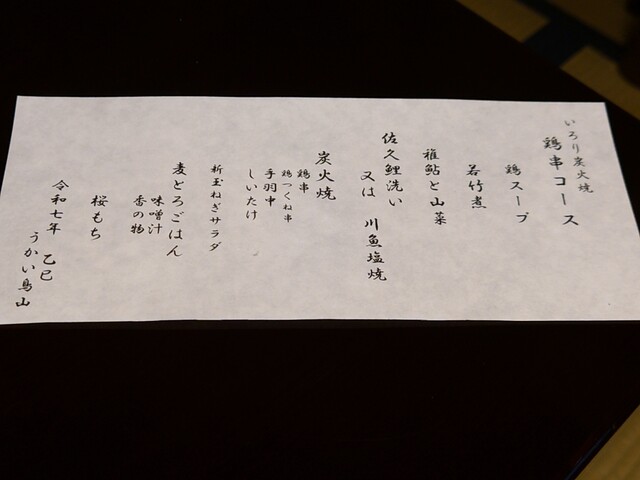 いろり炭火焼
鶏串コース
鶏スープ
若竹煮
稚鮎と山菜
佐久鯉洗い
又は 川魚塩焼
炭火焼
鶏串
鶏つくね串
手羽串
しいたけ
新玉ねぎサラダ
麦とろごはん
味噌汁
香の物
桜もち
令和七年 乙巳
うかい鳥山